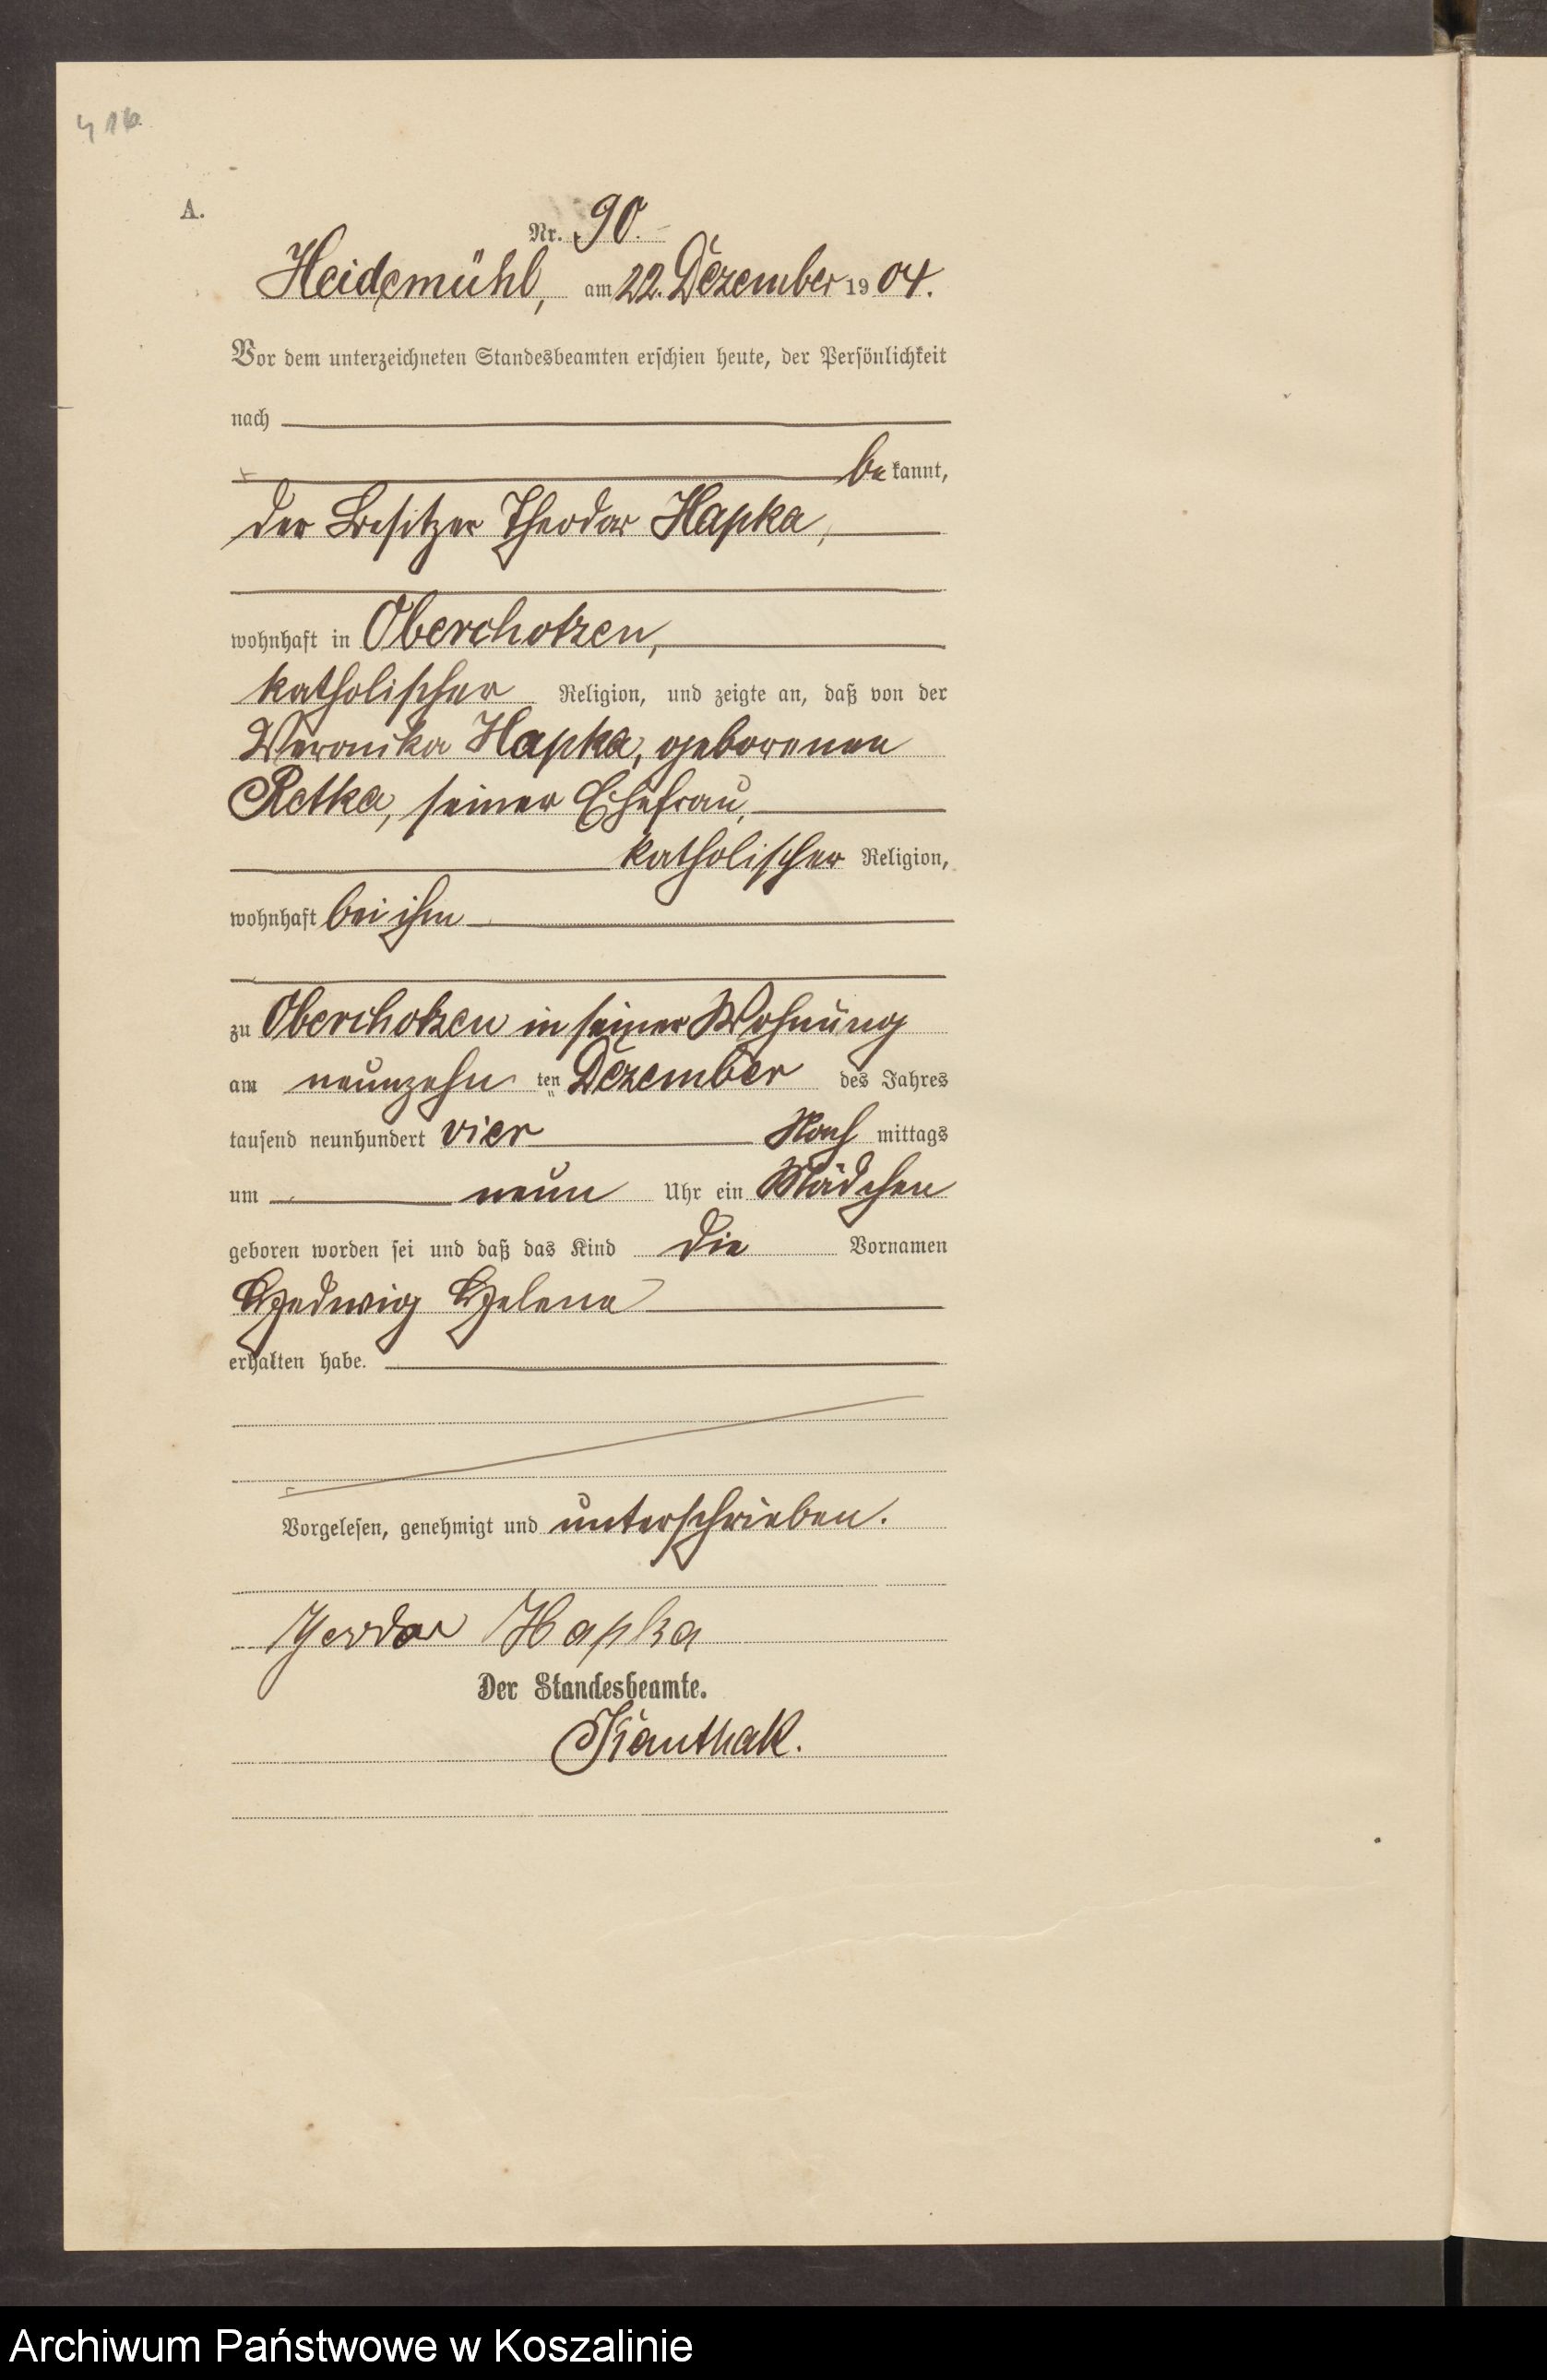 416
A.
Nr. 90.
Heidemühl, am 22. Dezember 1904.
Vor dem unterzeichneten Standesbeamten erschien heute, der Persönlichkeit
nach
bekannt,
der Besitzer Theodor Hapka,
wohnhaft in Oberchotzen,
katholischer Religion, und zeigte an, daß von der
Weronika Hapka, geborenen
Retka, seiner Ehefrau,
katholischer Religion,
wohnhaft bei ihm
zu Oberchotzen in seiner Wohnung
am neunzehn ten Dezember des Jahres
tausend neunhundert vier Nach mittags
um neun Uhr ein Mädchen
geboren worden sei und daß das Kind die Vornamen
Hedwig Helene
erhalten habe.
Vorgelesen, genehmigt und unterschrieben.
Hapka
Der Standesbeamte.
Archiwum Państwowe w Koszalinie